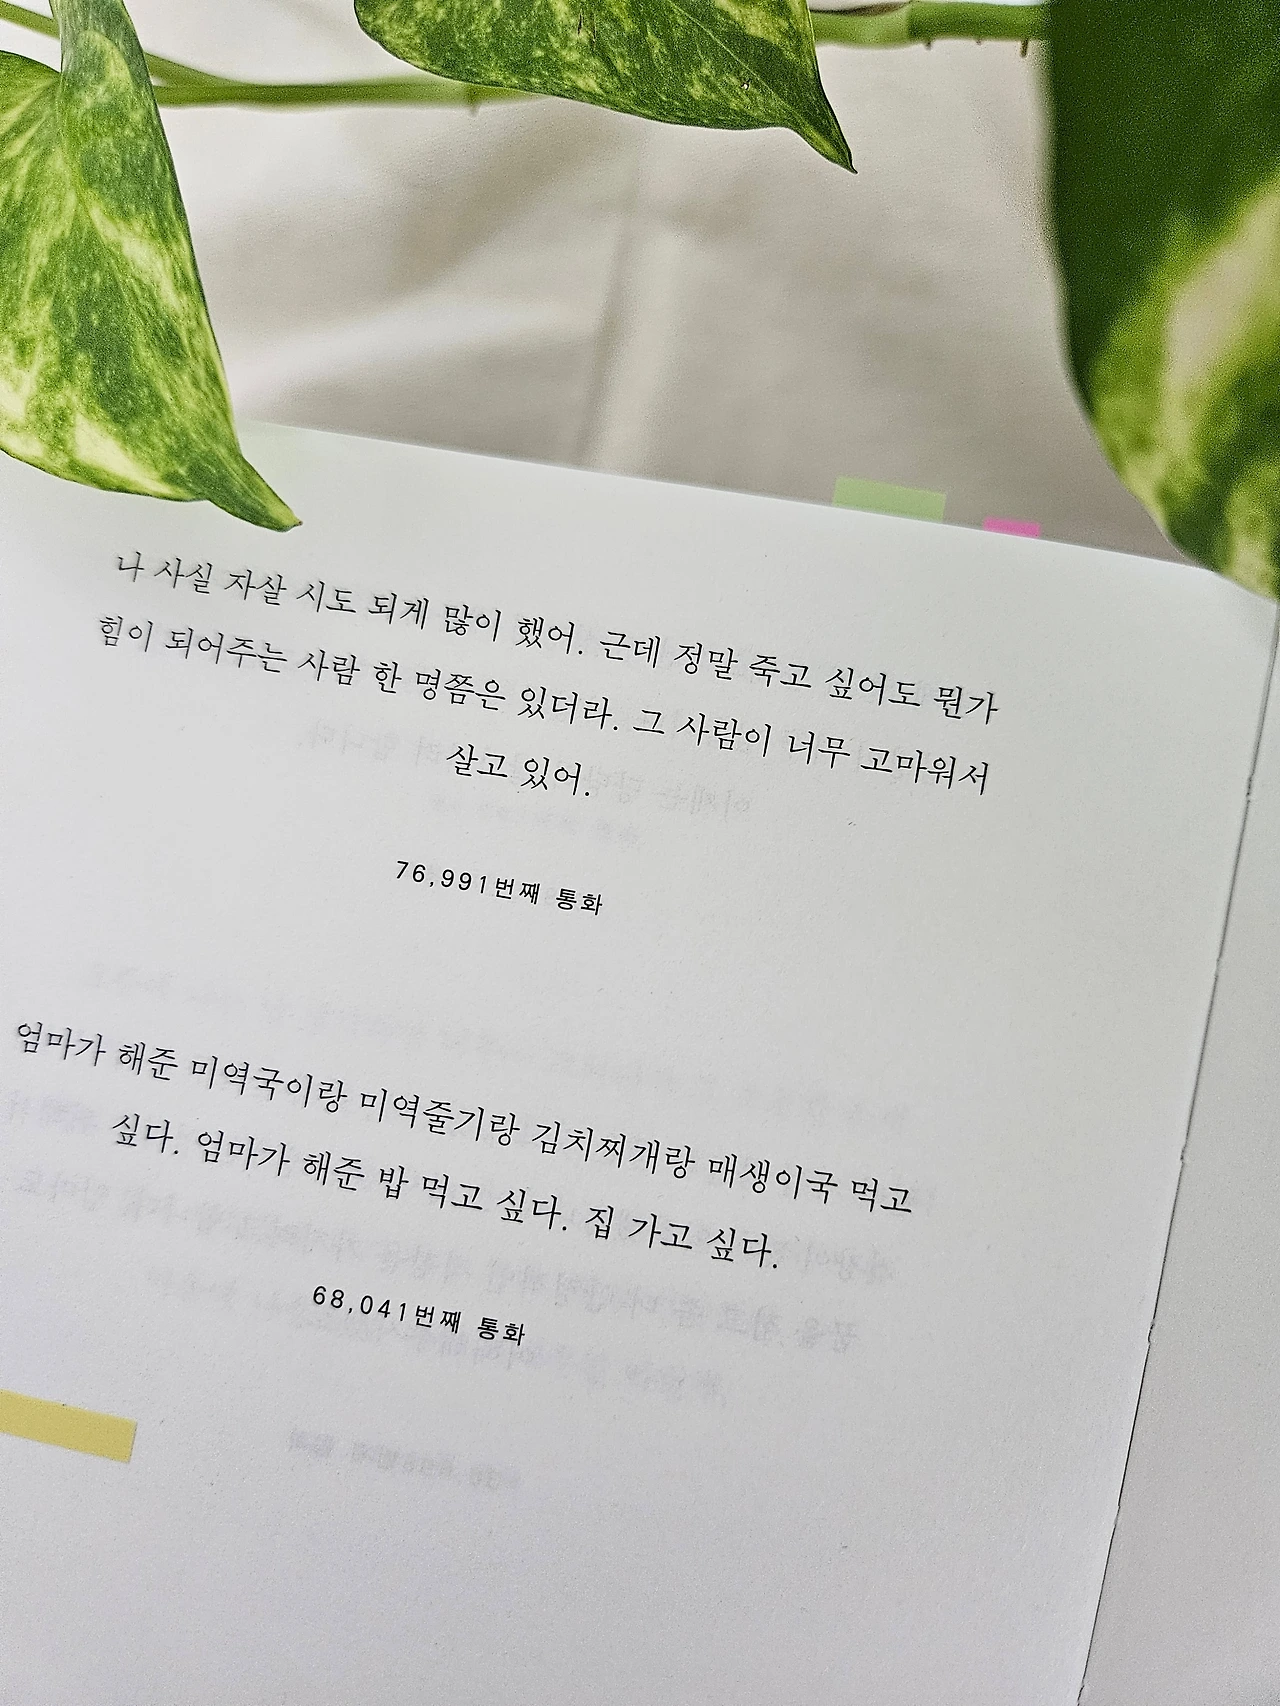 나 사실 자살 시도 되게 많이 했어. 근데 정말 죽고 싶어도 뭔가
힘이 되어주는 사람 한 명쯤은 있더라. 그 사람이 너무 고마워서
살고 있어.
76,991번째 통화
엄마가 해준 미역국이랑 미역줄기랑 김치찌개랑 매생이국 먹고
싶다. 엄마가 해준 밥 먹고 싶다. 집 가고 싶다.
68,041번째 통화